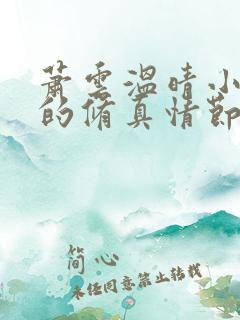 蕭雲溫晴小
的脩真情節
簡心
未经同意禁止转载